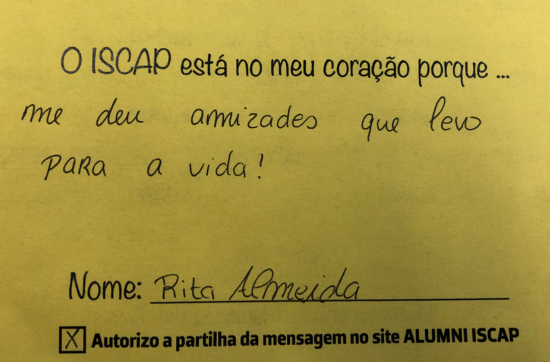 O ISCAP está no meu coração porque ...
me deu amizades que levo
PARA a vida!
Nome: Rita Almeida
X Autorizo a partilha da mensagem no site ALUMNI ISCAP